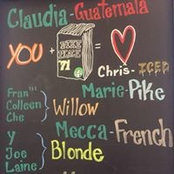 Claudia-Guatemala
YOU + PIKE PLACE 71 =
Chris-ICED
Marie-Pike
Fran
Colleen
Che
Willow
Mecca-French
y
Joe
Laine
Blonde